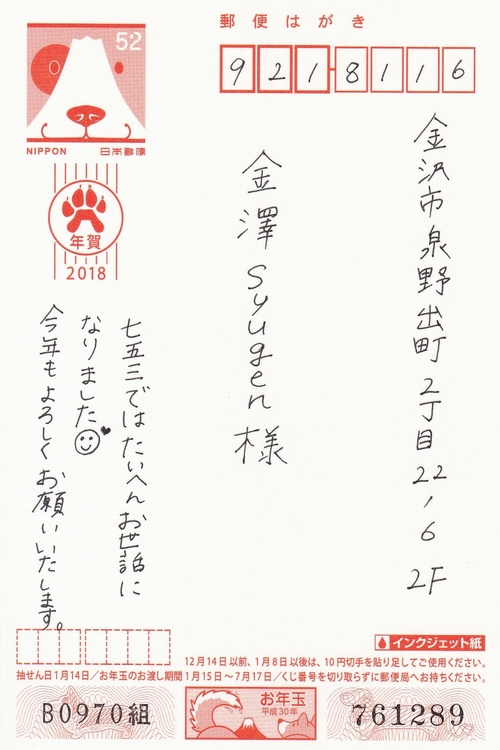 郵便はがき
52
NIPPON 日本郵便
年賀
2018
921-8116
金沢市泉野出町2丁目22-6 2F
金澤Syugen様
七五三ではたいへんお世話に
なりました
今年もよろしくお願いいたします。
インクジェット紙
12月14日以前、1月8日以後は、10円切手を貼り足してご使用ください。
抽せん日1月14日/お年玉のお渡し期間1月15日~7月17日/くじ番号を切り取らずに郵便局へお持ちください。
B0970組
お年玉
平成30年
761289